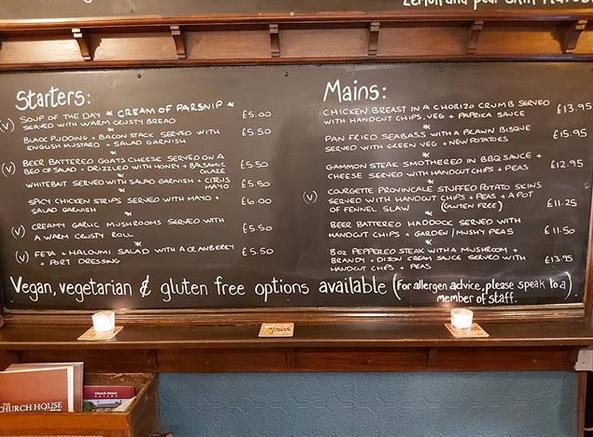 Lemon and pear
Starters:
(V) SOUP OF THE DAY * CREAM OF PARSNIP * £5.00
SERVED WITH WARM CRUSTY BREAD
*
BLACK PUDDING + BACON STACK SERVED WITH £5.50
ENGLISH MUSTARD + SALAD GARNISH
*
(V) BEER BATTERED GOATS CHEESE SERVED ON A
BED OF SALAD + DRIZZLED WITH HONEY + BALSAMIC £5.50
GLAZE
*
WHITEBAIT SERVED WITH SALAD GARNISH + CITRUS £5.50
MAYO
*
SPICY CHICKEN STRIPS SERVED WITH MAYO + £6.00
SALAD GARNISH
*
(V) CREAMY GARLIC MUSHROOMS SERVED WITH £5.50
A WARM CRUSTY ROLL
*
(V) FETA + HALOUMI SALAD WITH A CRANBERRY £5.50
+ PORT DRESSING
Mains:
CHICKEN BREAST IN A CHORIZO CRUMB SERVED £13.95
WITH HANDCUT CHIPS, VEG + PAPRIKA SAUCE
*
PAN FRIED SEABASS WITH A PRAWN BISQUE £15.95
SERVED WITH GREEN VEG + NEW POTATOES
*
GAMMON STEAK SMOTHERED IN BBQ SAUCE + £12.95
CHEESE SERVED WITH HANDCUT CHIPS + PEAS
*
(V) COURGETTE PROVINCALE STUFFED POTATO SKINS
SERVED WITH HANDCUT CHIPS + PEAS + A POT £11.25
OF FENNEL SLAW (GLUTEN FREE)
*
BEER BATTERED HADDOCK SERVED WITH £11.50
HANDCUT CHIPS + GARDEN / MUSHY PEAS
*
8oz PEPPERED STEAK WITH A MUSHROOM +
BRANDY + DIJON CREAM SAUCE SERVED WITH £13.95
HANDCUT CHIPS + PEAS
Vegan, vegetarian & gluten free options available (For allergen advice, please speak to a)
member of staff.
CHURCH HOUSE
Church House